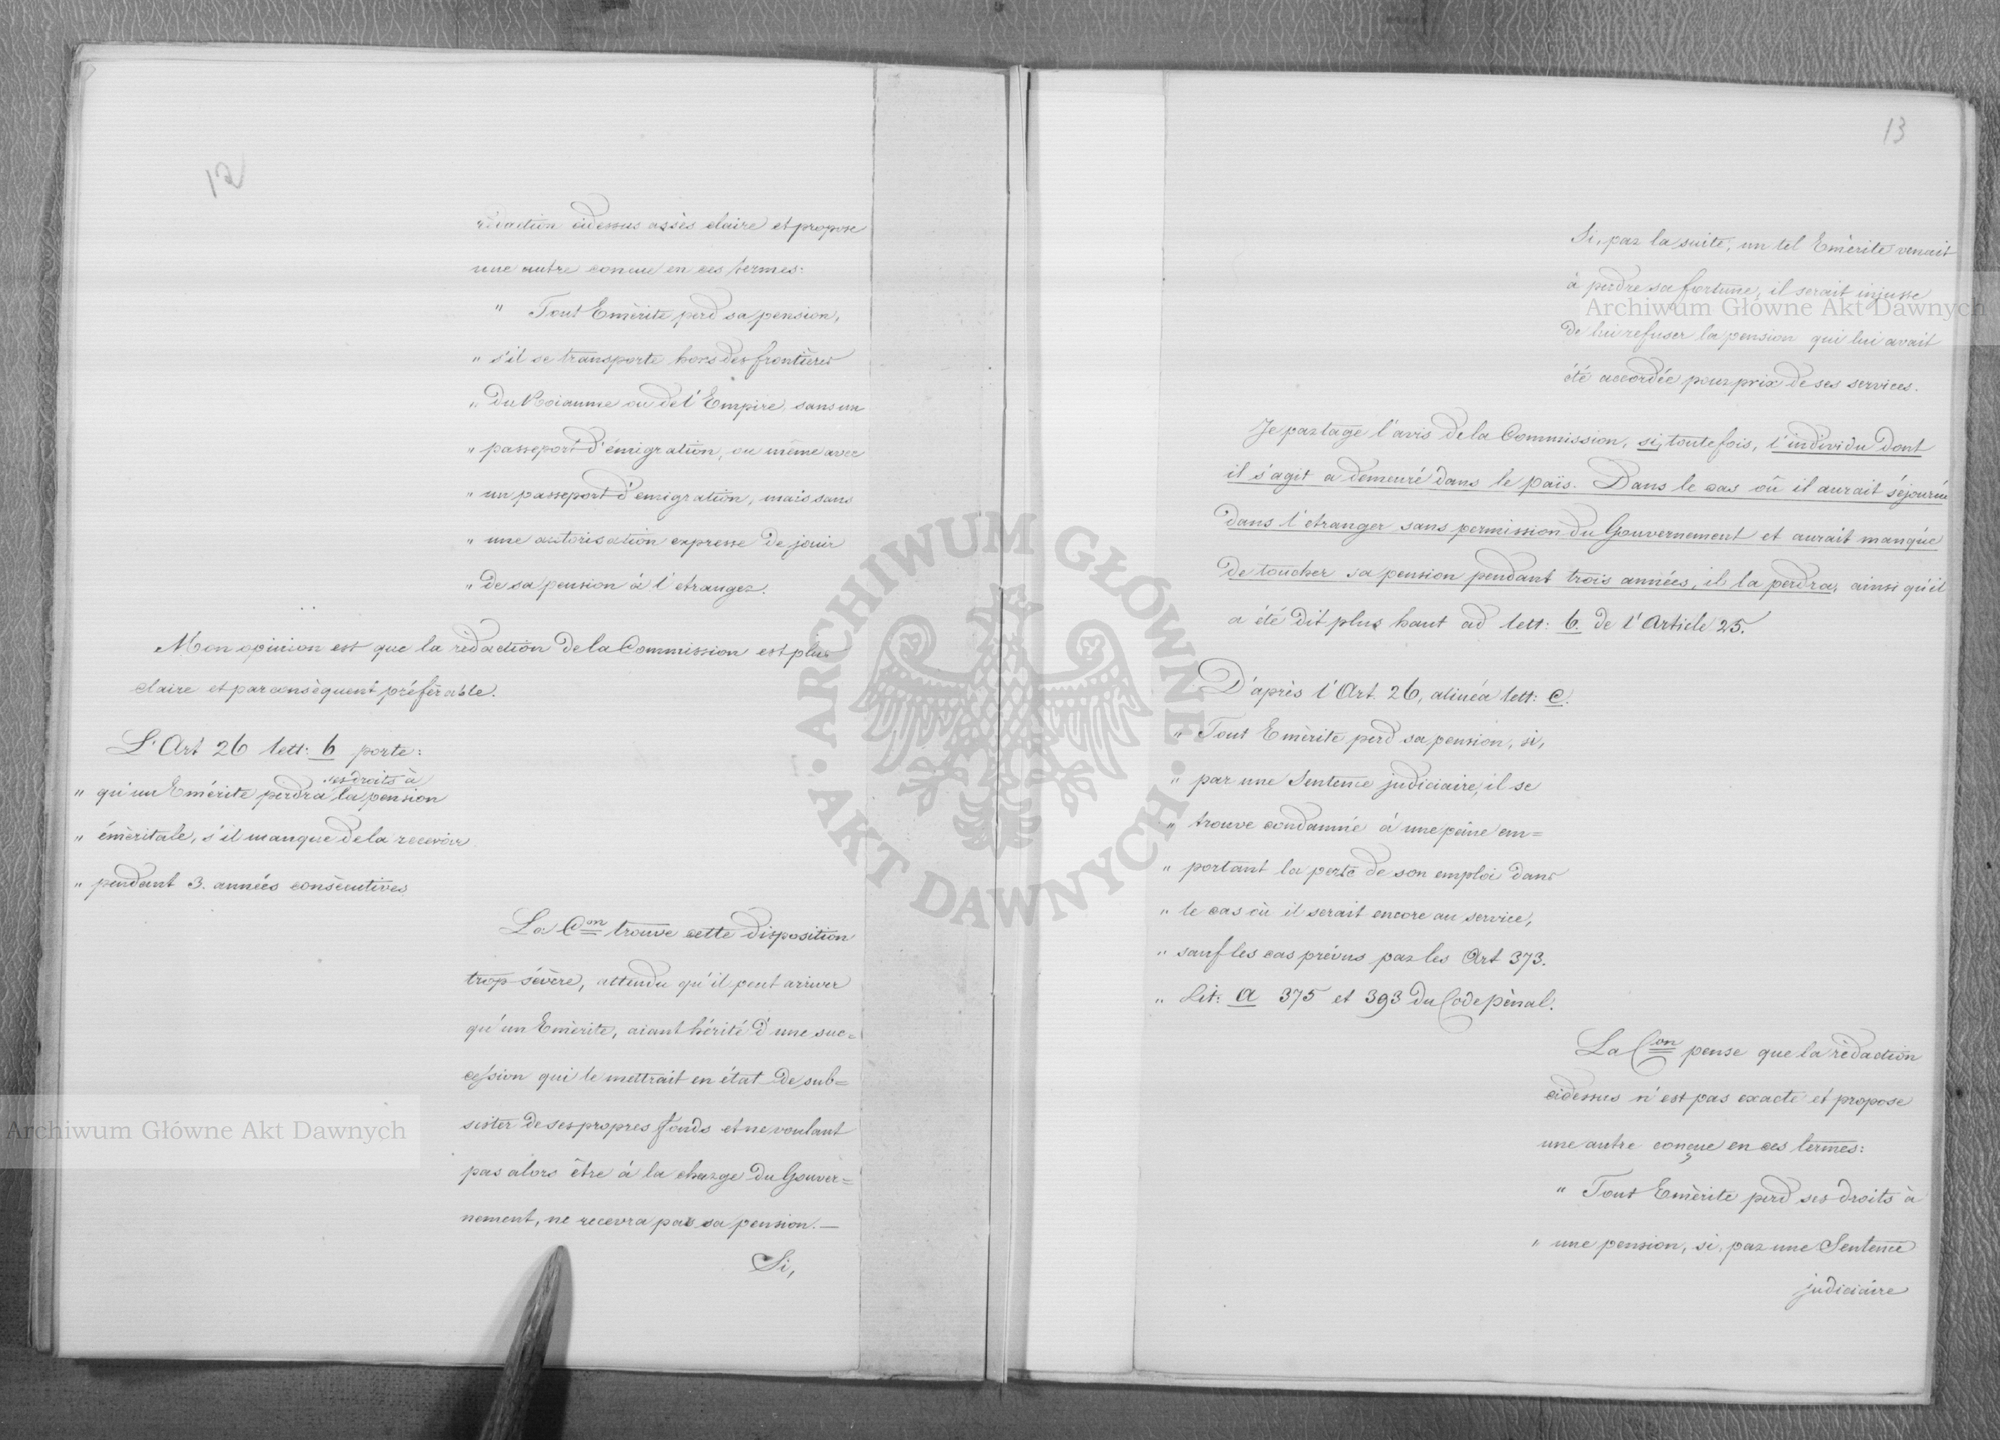 12
rédaction cidessus assès claire et propose
une autre concue en ces termes:
" Tout Emèrite perd sa pension,
" s'il se transporte hors des frontières
" du Roiaume ou de l'Empire, sans un
" passeport d'émigration, ou même avec
" un passeport d'émigration, mais sans
" une autorisation expresse de jouir
" de sa pension à l'etranger.
Mon opinion est que la rédaction de la Commission est plus
claire et par consèquent préfèrable.
L'Art 26 lett: b porte:
ses droits à
" qu'un Emérite perdra la pension
" émèritale, s'il manque de la recevoir
" pendant 3. années consècutives
La Con trouve cette disposition
trop sévère, attendu qu'il peut arriver
qu'un Emèrite, aiant hérité d'une suc=
cession qui le mettrait en état de sub=
sister de ses propres fonds et ne voulant
pas alors être à la charge du Gouver=
nement, ne recevra pas sa pension. —
Si,
13
Si, par la suite, un tel Emèrite venait
à perdre sa fortune, il serait injuste
de lui refuser la pension qui lui avait
été accordée pour prix de ses services.
Je partage l'avis de la Commission, si, toutefois, l'individu dont
il s'agit a demeuré dans le païs. Dans le cas où il aurait séjourné
dans l'etranger sans permission du Gouvernement et aurait manqué
de toucher sa pension pendant trois années, il la perdra, ainsi qu'il
a été dit plus haut ad lett: b. de l'Article 25.
D'après l'Art. 26, alinéa lett: c.
" Tout Emèrite perd sa pension, si,
" par une Sentence judiciaire, il se
" trouve condamné à une peine em=
" portant la perte de son emploi dans
" le cas où il serait encore au service,
" sauf les cas prévus par les Art 373.
" Lit: a 375 et 393 du Code pènal.
La Con pense que la rèdaction
cidessus n'est pas exacte et propose
une autre conçue en ces termes:
" Tout Emèrite perd ses droits à
" une pension, si, par une Sentence
judiciaire
Archiwum Główne Akt Dawnych
Archiwum Główne Akt Dawnych
ARCHIWUM GŁÓWNE · AKT DAWNYCH ·